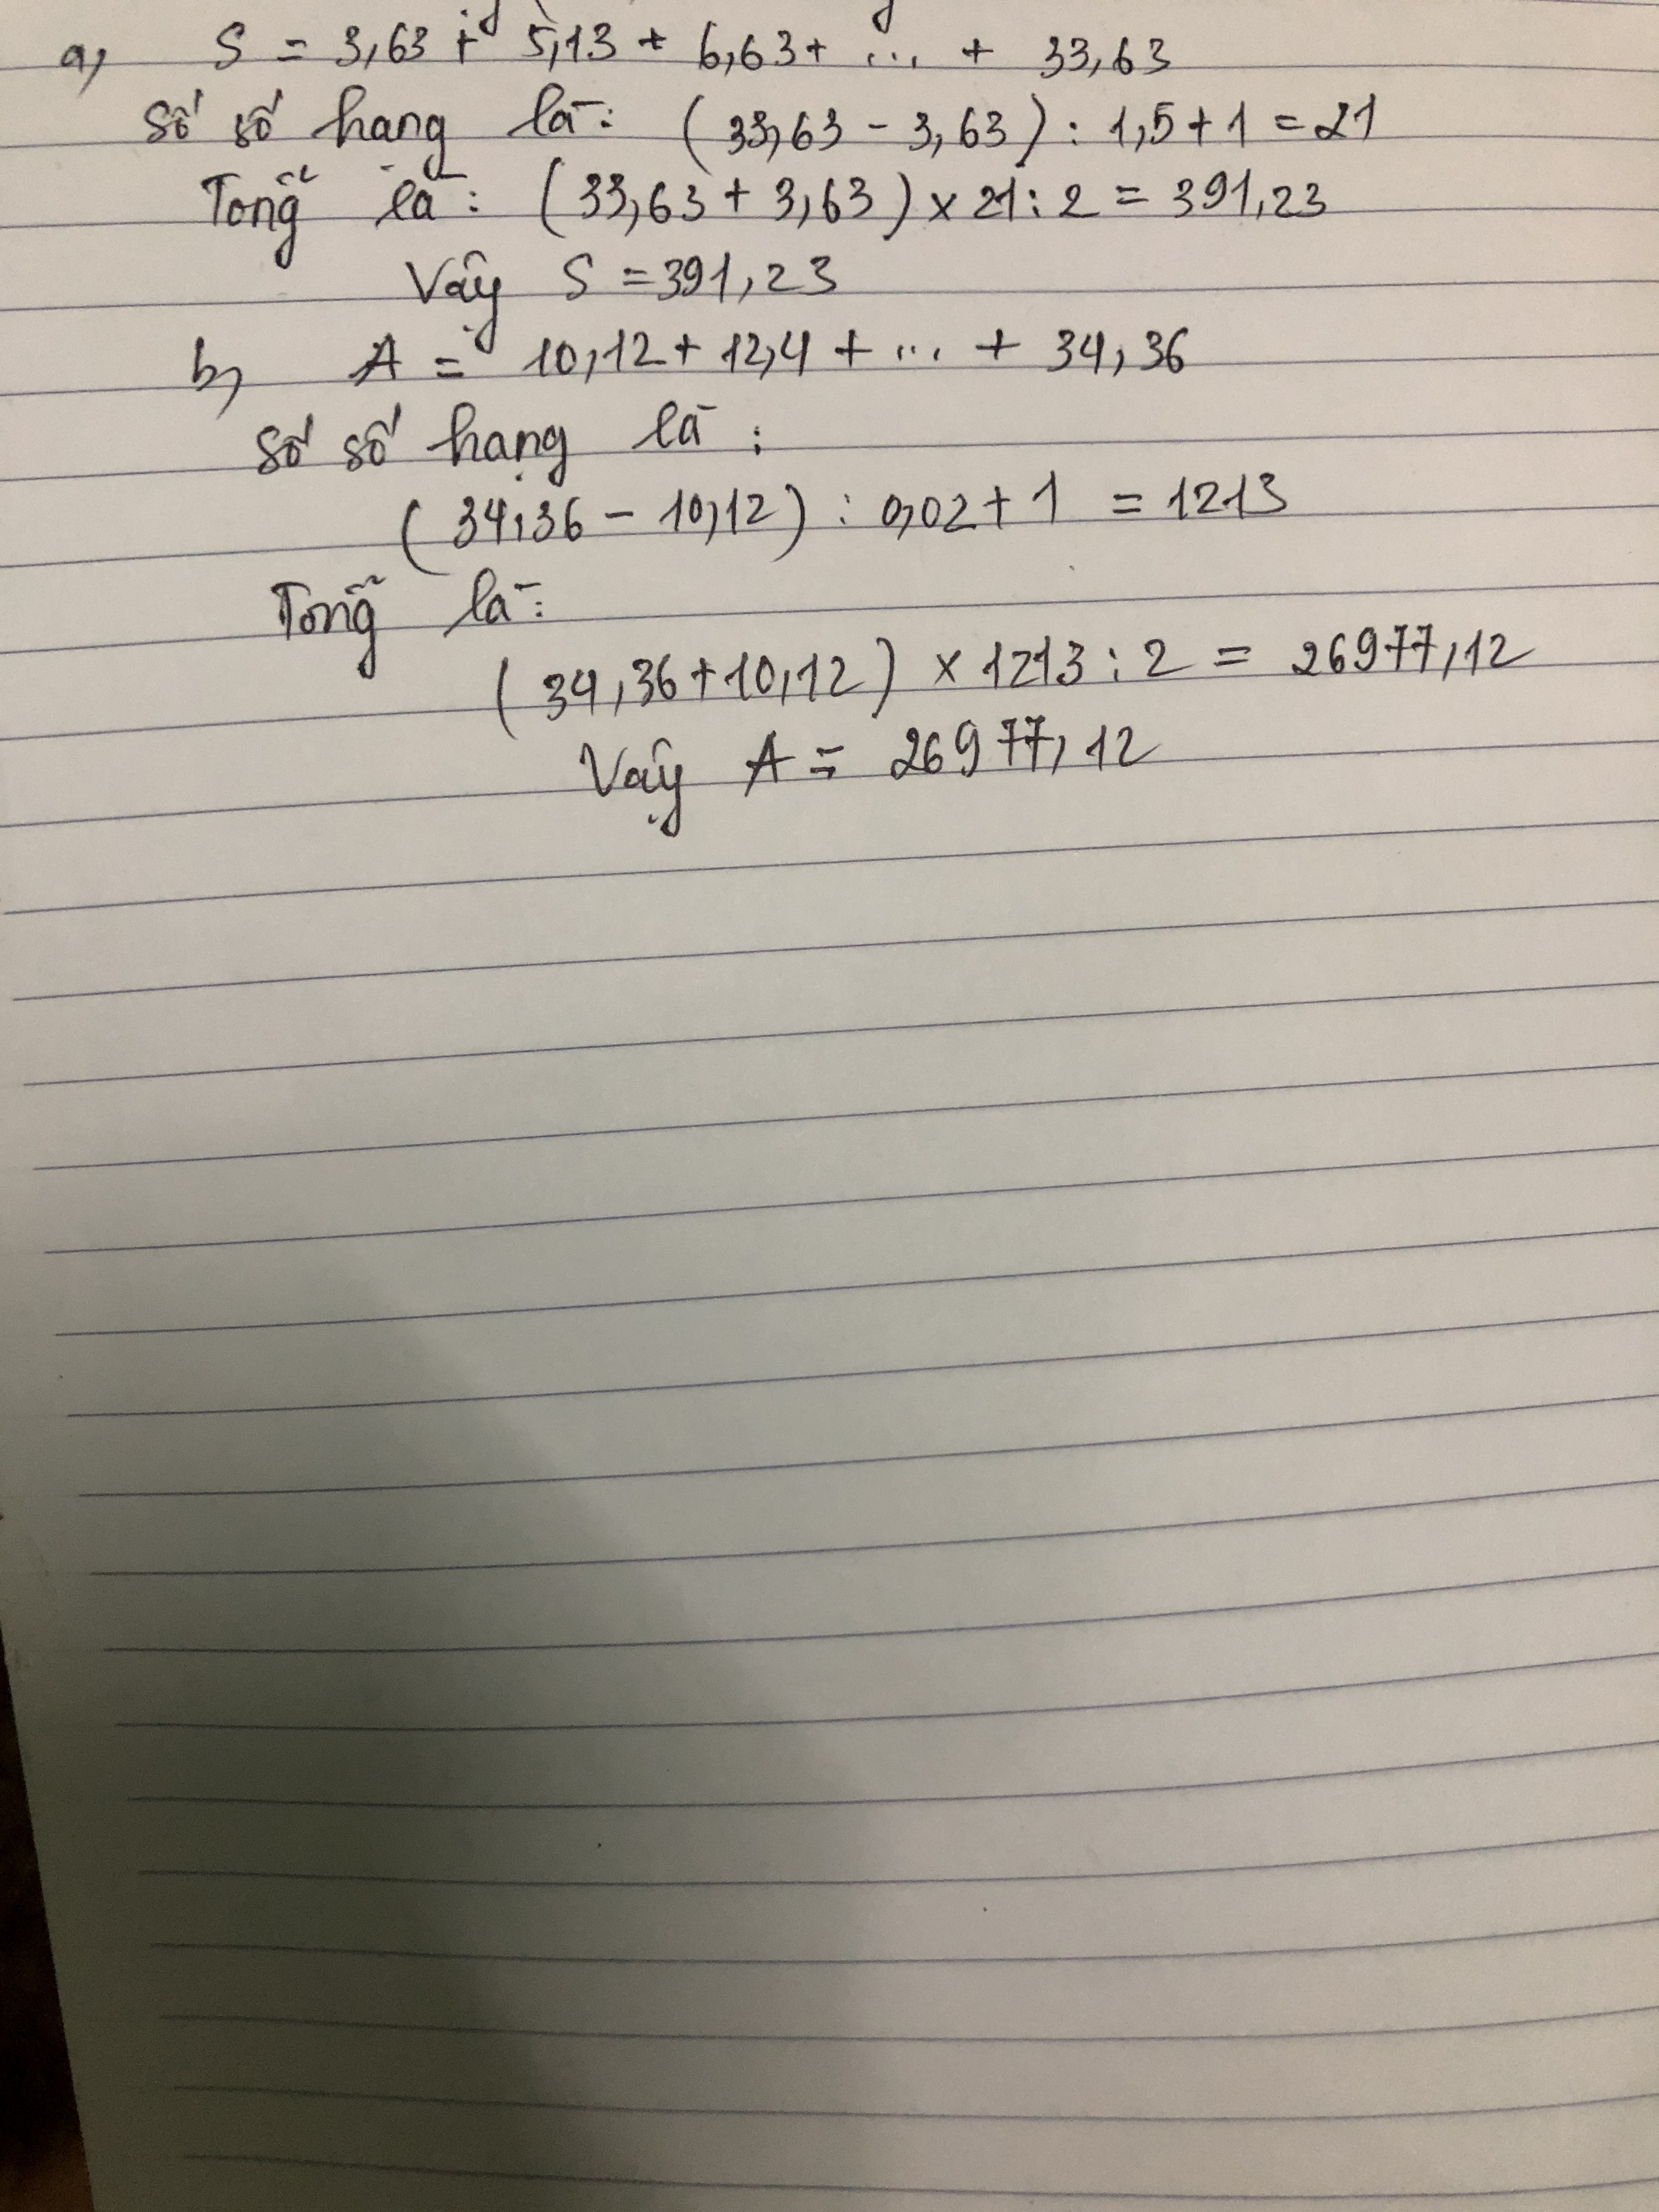 a, S = 3,63 + 5,13 + 6,63 + ... + 33,63
Số số hạng là: (33,63 - 3,63) : 1,5 + 1 = 21
Tổng là: (33,63 + 3,63) x 21 : 2 = 391,23
Vậy S = 391,23
b, A = 10,12 + 12,4 + ... + 34,36
Số số hạng là:
(34,36 - 10,12) : 0,02 + 1 = 1213
Tổng là:
(34,36 + 10,12) x 1213 : 2 = 26977,12
Vậy A = 26977,12